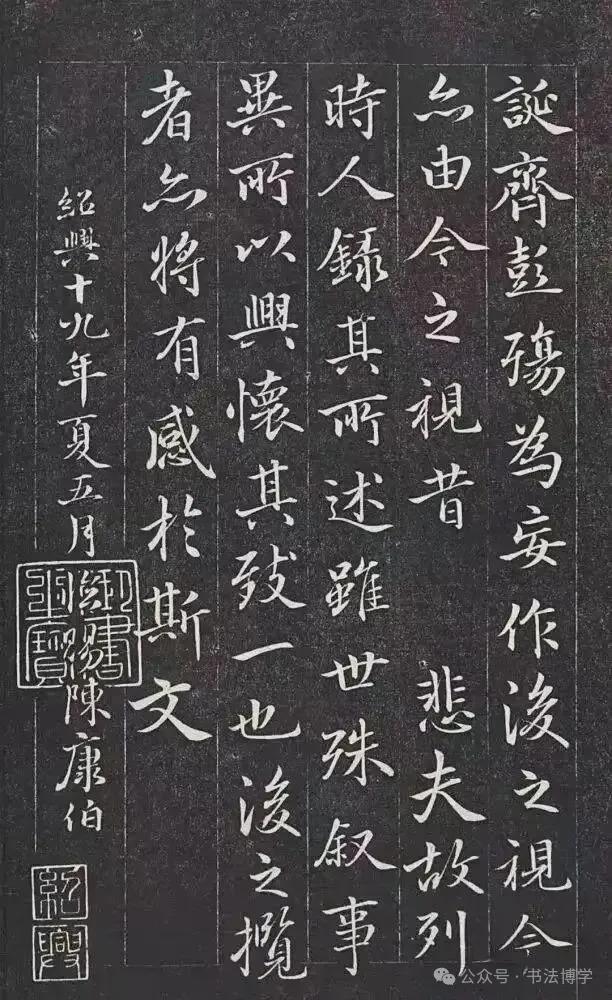 誕齊彭殤為妄作後之視今
亦由今之視昔 悲夫故列
時人錄其所述雖世殊叙事
異所以興懷其致一也後之攬
者亦將有感於斯文
紹興十九年夏五月御賜陳康伯
御書之寶
紹興
公众号·书法博学